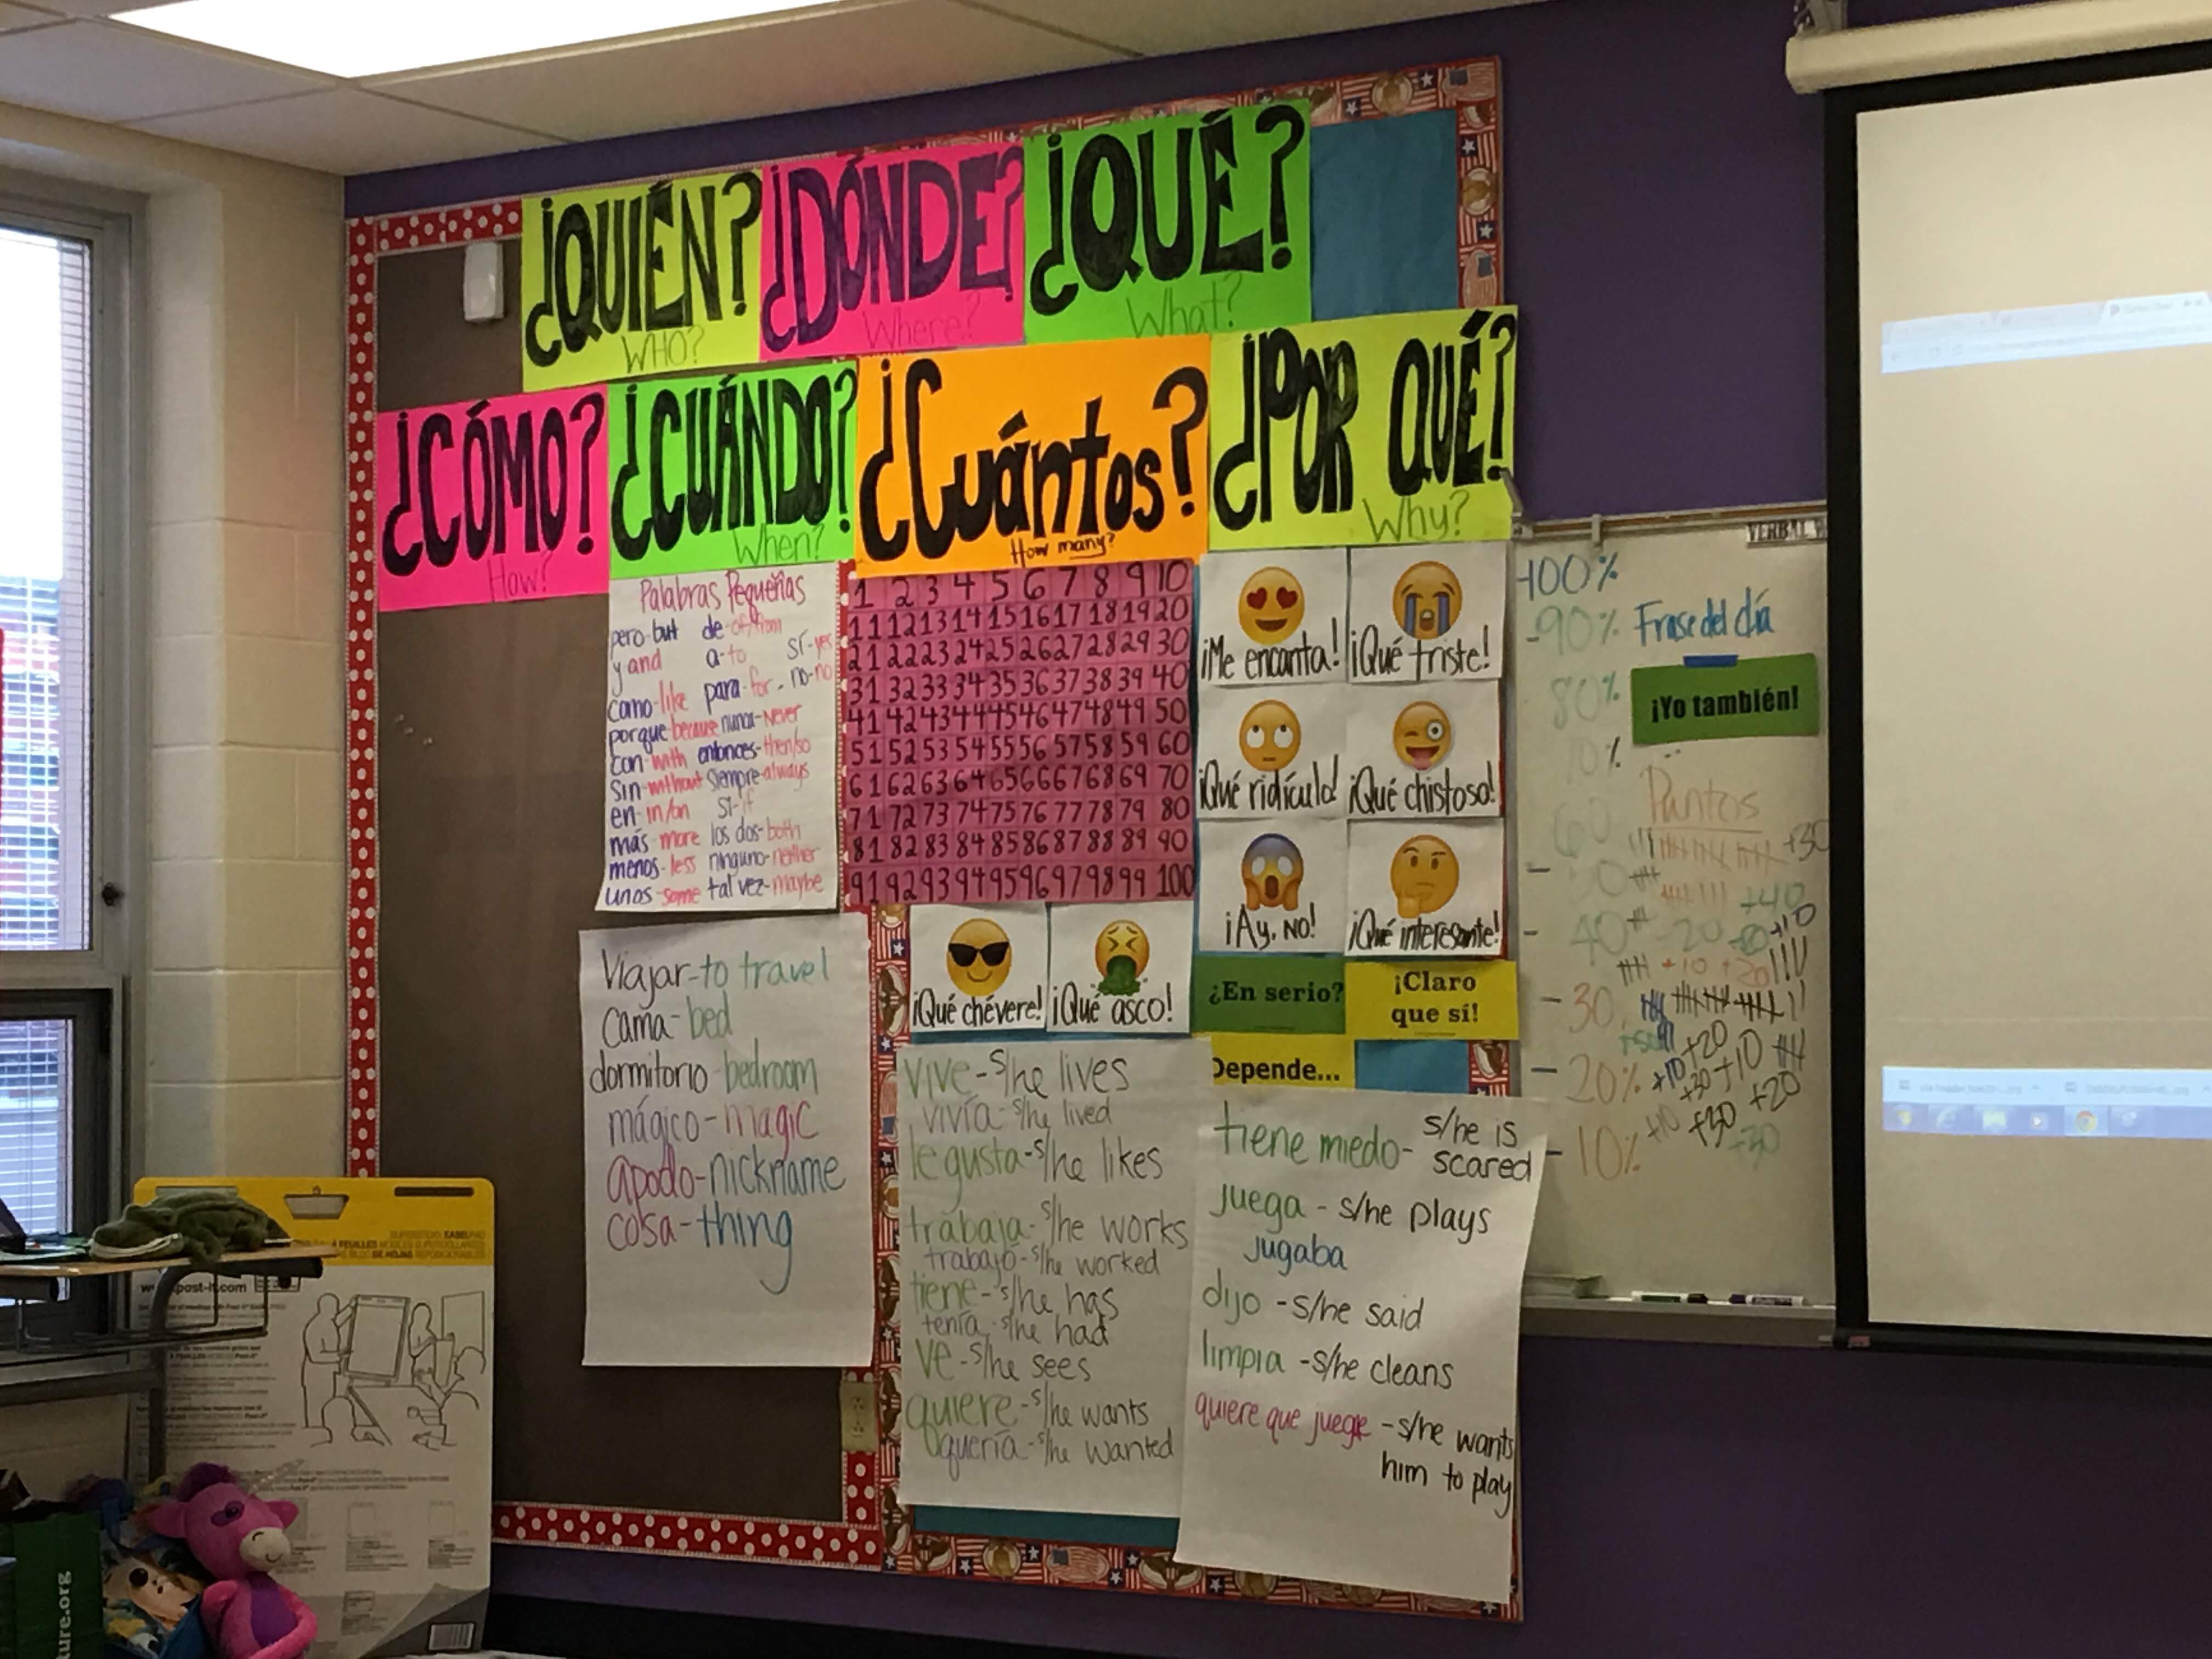 ¿QUIÉN?
WHO?
¿DÓNDE?
Where?
¿QUÉ?
What?
¿CÓMO?
How?
¿CUÁNDO?
When?
¿Cuántos?
How many?
¿POR QUÉ?
Why?
Palabras Pequeñas
pero-but de-of/from
y and a-to sí-yes
como-like para-for no-no
porque because nunca-never
con-with entonces-then/so
sin-without siempre-always
en-in/on si-if
más-more los dos-both
menos-less ninguno-neither
unos-some tal vez-maybe
1 2 3 4 5 6 7 8 9 10
11 12 13 14 15 16 17 18 19 20
21 22 23 24 25 26 27 28 29 30
31 32 33 34 35 36 37 38 39 40
41 42 43 44 45 46 47 48 49 50
51 52 53 54 55 56 57 58 59 60
61 62 63 64 65 66 67 68 69 70
71 72 73 74 75 76 77 78 79 80
81 82 83 84 85 86 87 88 89 90
91 92 93 94 95 96 97 98 99 100
¡Me encanta!
¡Qué triste!
¡Qué ridículo!
¡Qué chistoso!
¡Ay, NO!
¡Qué interesante!
¡Qué chévere!
¡Qué asco!
¿En serio?
¡Claro
que sí!
Depende...
Viajar-to travel
Cama-bed
dormitorio-bedroom
mágico-magic
apodo-nickname
cosa-thing
vive-s/he lives
vivía-s/he lived
le gusta-s/he likes
trabaja-s/he works
trabajó-s/he worked
tiene-s/he has
tenía-s/he had
ve-s/he sees
quiere-s/he wants
quería-s/he wanted
tiene miedo- s/he is
scared
juega - s/he plays
jugaba
dijo - s/he said
limpia - s/he cleans
quiere que juegue - s/he wants
him to play
VERBAL
100%
90%
80%
70%
60
50
40
30
20%
10%
Frase del día
¡Yo también!
Puntos
+30
+40
20
+10
+10
+20
+20
+10
+10
+30
+20
+10
+30
+30
post-it.com
ure.org